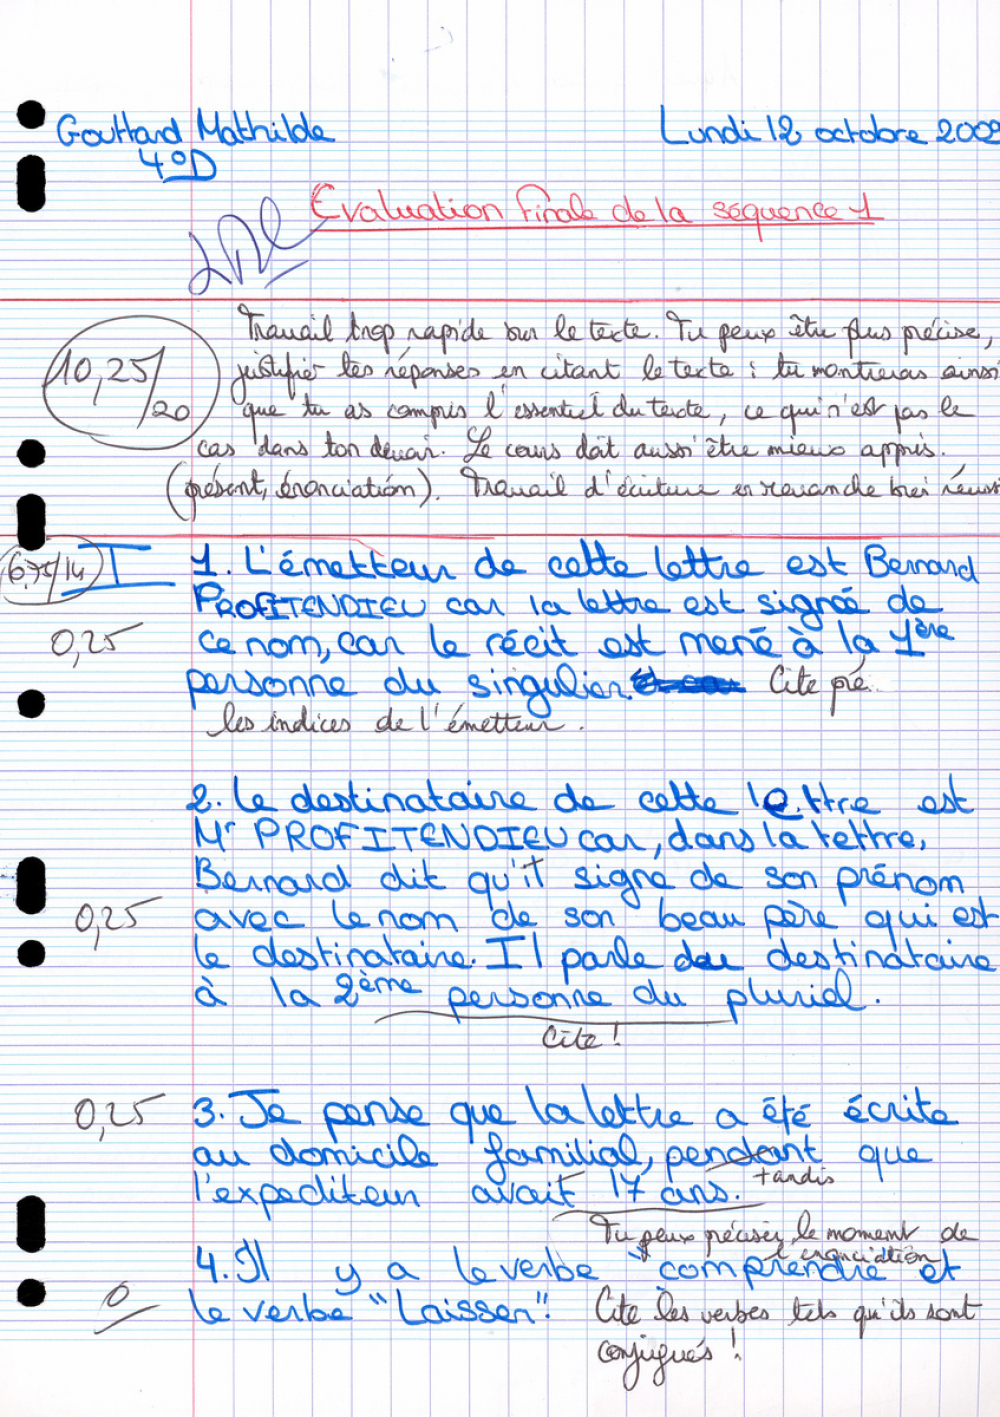 Gouttard Mathilde
Lundi 12 octobre 2009
4°D
Evaluation finale de la séquence 1
Travail trop rapide sur le texte. Tu peux être plus précise,
10,25/20
justifier tes réponses en citant le texte : tu montreras ainsi
que tu as compris l'essentiel du texte, ce qui n'est pas le
cas dans ton devoir. Le cours doit aussi être mieux appris.
(présent, énonciation). Travail d'écriture en revanche très réussi
6,75/14
I
1. L'émetteur de cette lettre est Bernard
PROFITENDIEU car la lettre est signée de
0,25
ce nom, car le récit est mené à la 1ère
personne du singulier. Cite pré
les indices de l'émetteur.
2. Le destinataire de cette lettre est
Mr PROFITENDIEU car, dans la lettre,
Bernard dit qu'il signe de son prénom
0,25
avec le nom de son beau père qui est
le destinataire. Il parle du destinataire
à la 2ème personne du pluriel.
Cite !
0,25
3. Je pense que la lettre a été écrite
au domicile familial, pendant que
tandis
l'expediteur avait 17 ans.
Tu peux préciser le moment de
l'énonciation
4. Il y a le verbe "comprendre et
0
le verbe "Laisser". Cite les verbes tels qu'ils sont
conjugués !